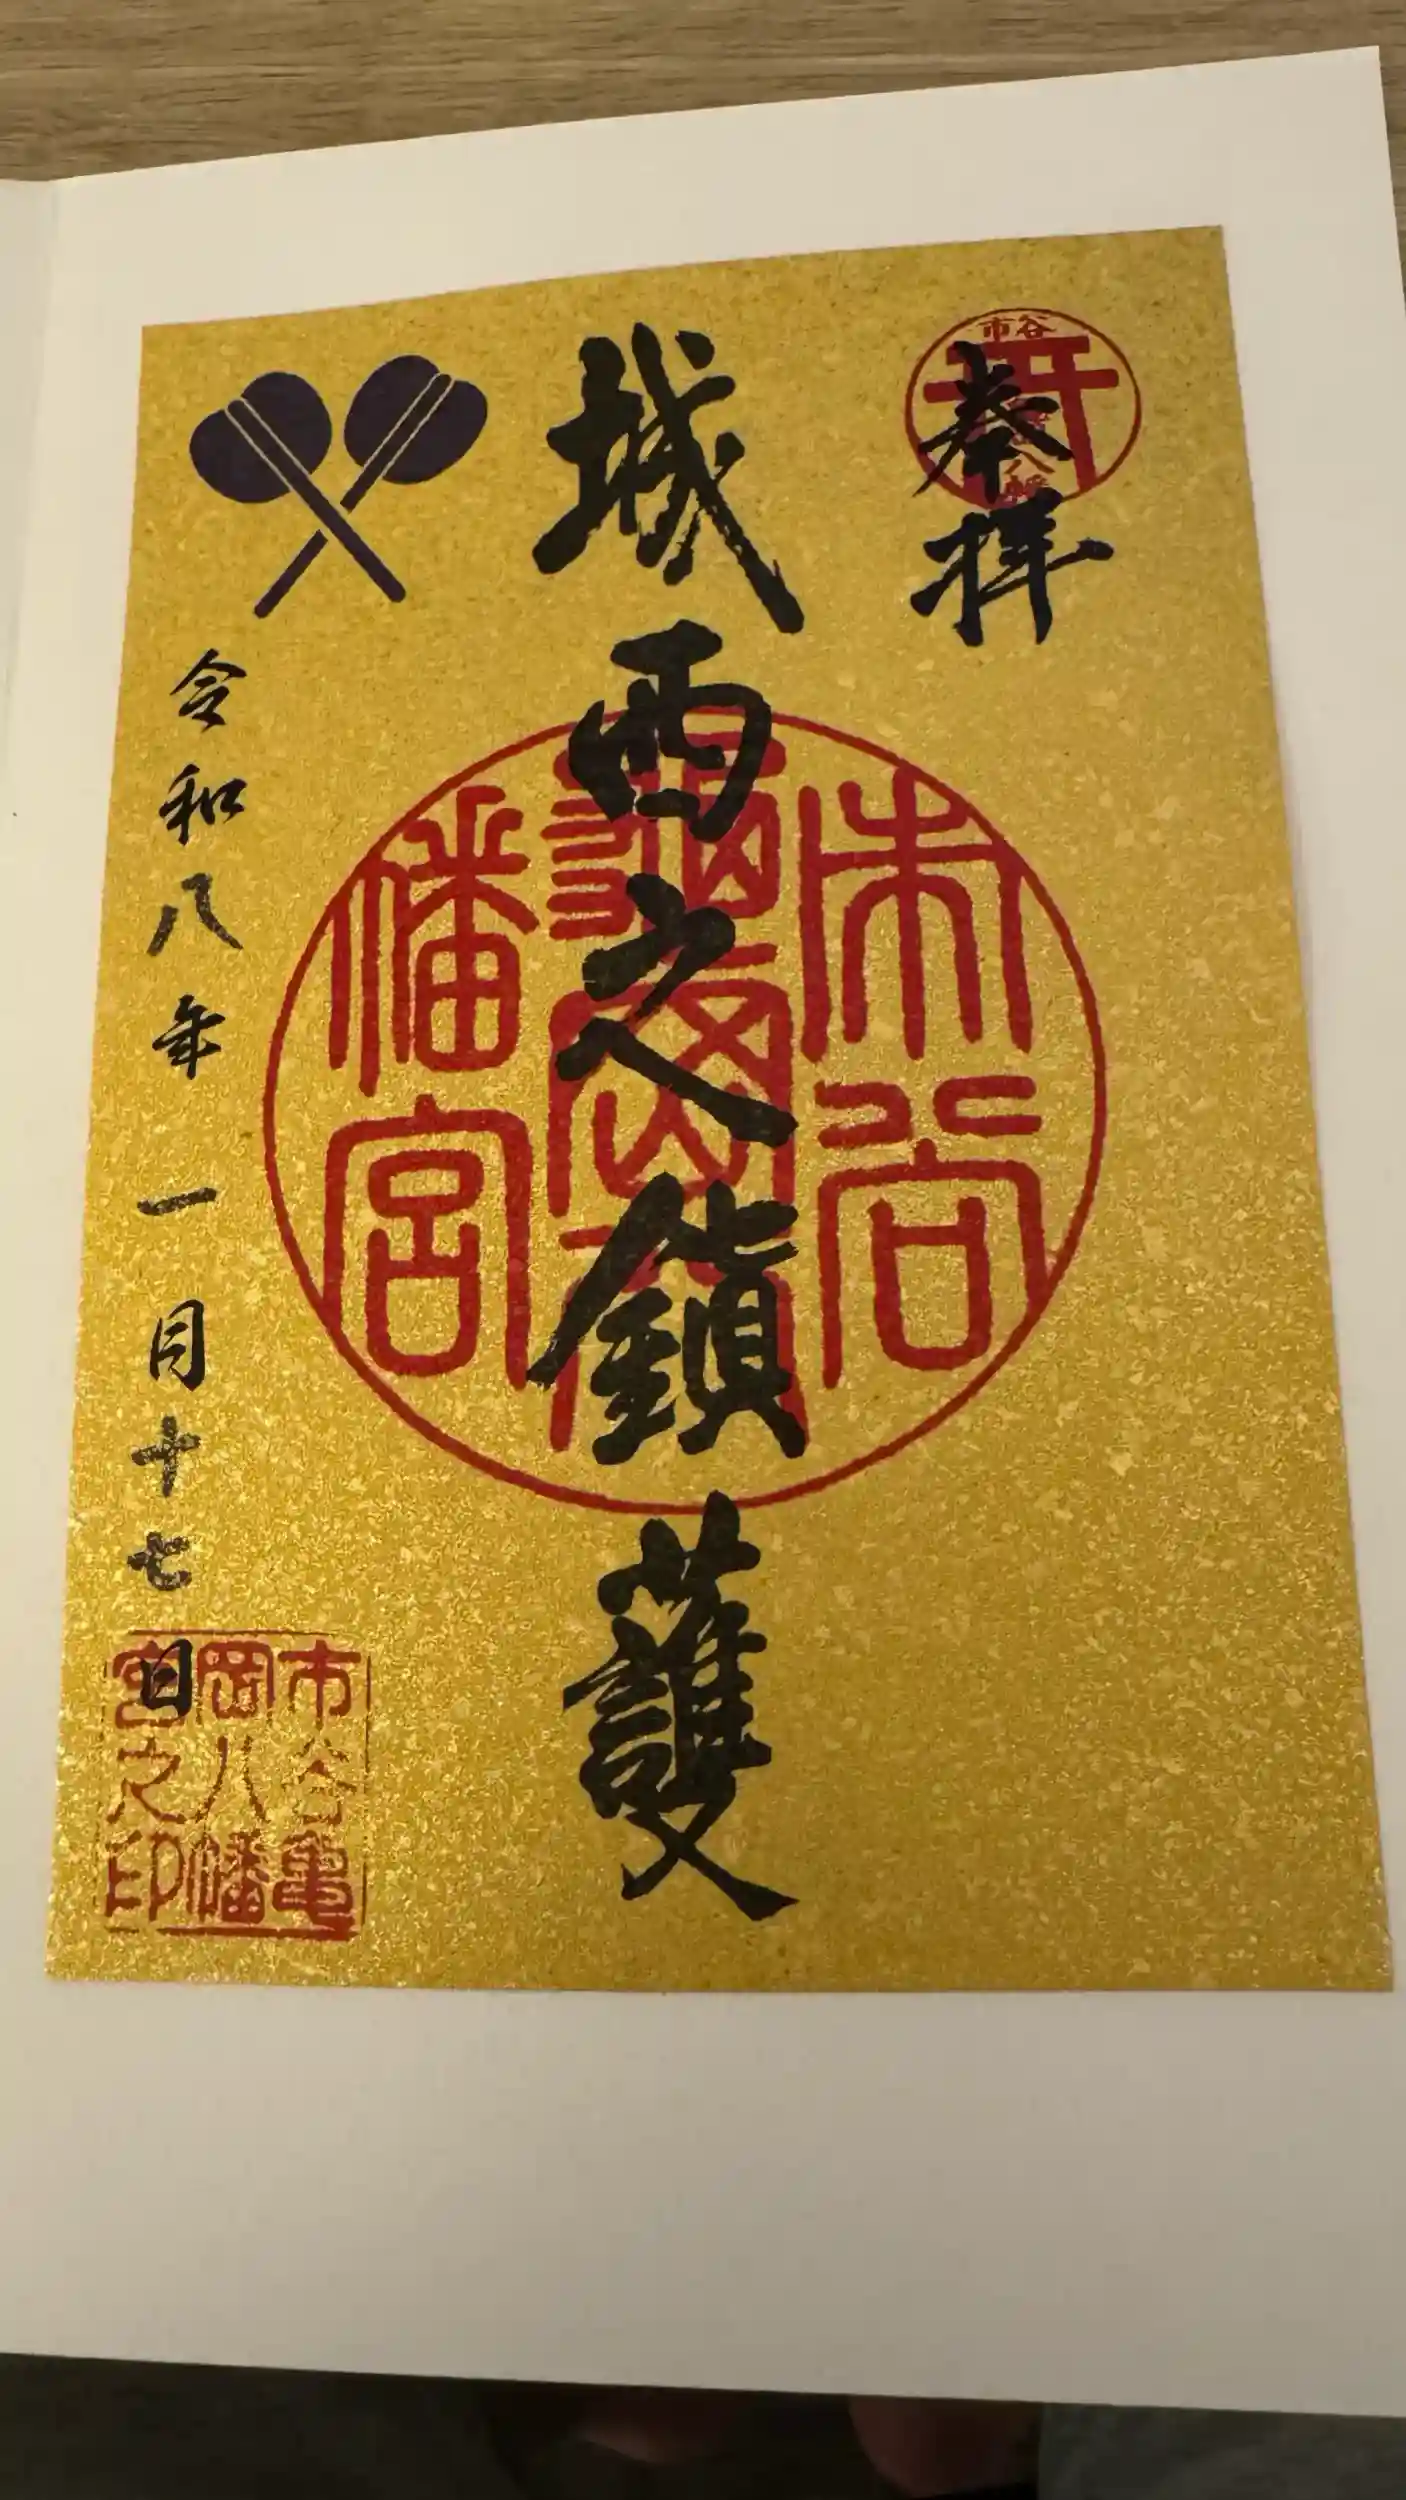 奉拝
市谷
八幡
城西之鎮護
市谷
亀岡八
幡宮
令和八年一月十七日
市谷亀
岡八幡
宮之印